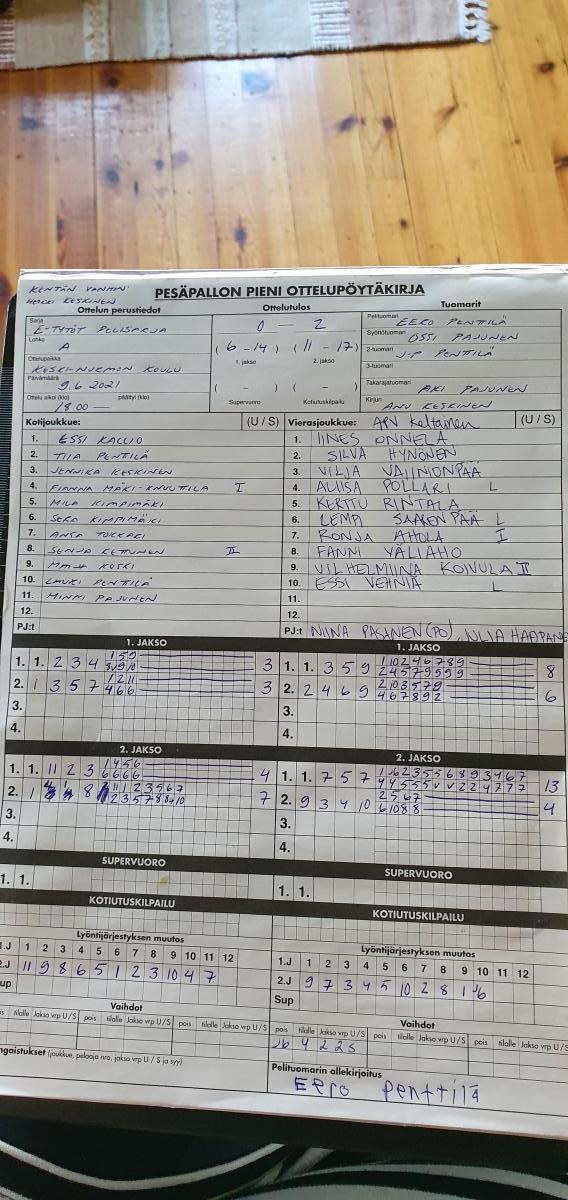 KENTÄN VANHIN
HEIKKI KESKINEN
PESÄPALLON PIENI OTTELUPÖYTÄKIRJA
Ottelun perustiedot Ottelutulos Tuomarit
Sarja E-TYTÖT PELISARJA
Lohko A
Ottelupaikka KESKI-NURMON KOULU
Päivämäärä 9.6 2021
Ottelu alkoi (klo) 18.00 — päättyi (klo)
0 — 2
(6 - 14) (11 - 17)
1. jakso 2. jakso
( - ) ( - )
Supervuoro Kotiutuskilpailu
Pelituomari EERO PENTTILÄ
Syöttötuomari OSSI PAJUNEN
2-tuomari J-P PENTTILÄ
3-tuomari
Takarajatuomari AKI PAJUNEN
Kirjuri ANU KESKINEN
Kotijoukkue: (U / S)
1. ESSI KALLIO
2. TIIA PENTILÄ
3. JENNIKA KESKINEN
4. FIANNA MÄKI-KNUUTILA I
5. MILA KIMPIMÄKI
6. SERA KIMPIMÄKI
7. ANSA TOKKARI
8. SENJA KETTUNEN II
9. MAIJA KOSKI
10. LAURI PENTTILÄ
11. MINNI PAJUNEN
12.
PJ:t
Vierasjoukkue: APV keltainen (U / S)
1. IINES ONNELA
2. SILVA HYNÖNEN
3. VILJA VAINIONPÄÄ
4. AUIISA POLLARI L
5. KERTTU RINTALA
6. LEMPI SAARENPÄÄ L
7. RONJA AHOLA I
8. FANNI VÄLIAHO
9. VILHELMIINA KOIVULA II
10. ESSI VEHNIÄ L
11.
12.
PJ:t NIINA PASANEN (PO), JULIA HAAPANE
1. JAKSO
1. 1. 2 3 4 1 5 9 3
8 9 9 10
2. 1 3 5 7 1 2 11 3
4 6 6
3.
4.
1. JAKSO
1. 1. 3 5 9 1 10 2 4 6 7 8 9 8
2 4 5 7 9 5 9 9
2. 2 4 6 9 2 10 3 5 7 9 6
4 6 7 8 9 2
3.
4.
2. JAKSO
1. 1. 11 2 3 1 4 5 6 4
6 6 6 6
2. 1 8 11 1 2 3 5 6 7 7
1 2 3 5 7 8 8 9 10
3.
4.
2. JAKSO
1. 1. 7 5 7 1 6 2 3 5 5 6 8 9 3 4 6 7 13
4 4 5 5 5 V V 2 2 4 7 7 7
2. 9 3 4 10 2 5 6 7 4
6 10 8 8
3.
4.
SUPERVUORO
1. 1.
SUPERVUORO
1. 1.
KOTIUTUSKILPAILU
KOTIUTUSKILPAILU
Lyöntijärjestyksen muutos
1.J 1 2 3 4 5 6 7 8 9 10 11 12
2.J 11 9 8 6 5 1 2 3 10 4 7
up
Lyöntijärjestyksen muutos
1.J 1 2 3 4 5 6 7 8 9 10 11 12
2.J 9 7 3 4 5 10 2 8 1 6
Sup
Vaihdot
is tilalle Jakso vrp U / S pois tilalle Jakso vrp U / S pois tilalle Jakso vrp U / S
Vaihdot
pois tilalle Jakso vrp U / S pois tilalle Jakso vrp U / S pois tilalle Jakso vrp U / S
4 2 2 S
ngaistukset (joukkue, pelaaja nro, jakso vrp U / S ja syy)
Pelituomarin allekirjoitus
Eero Penttilä